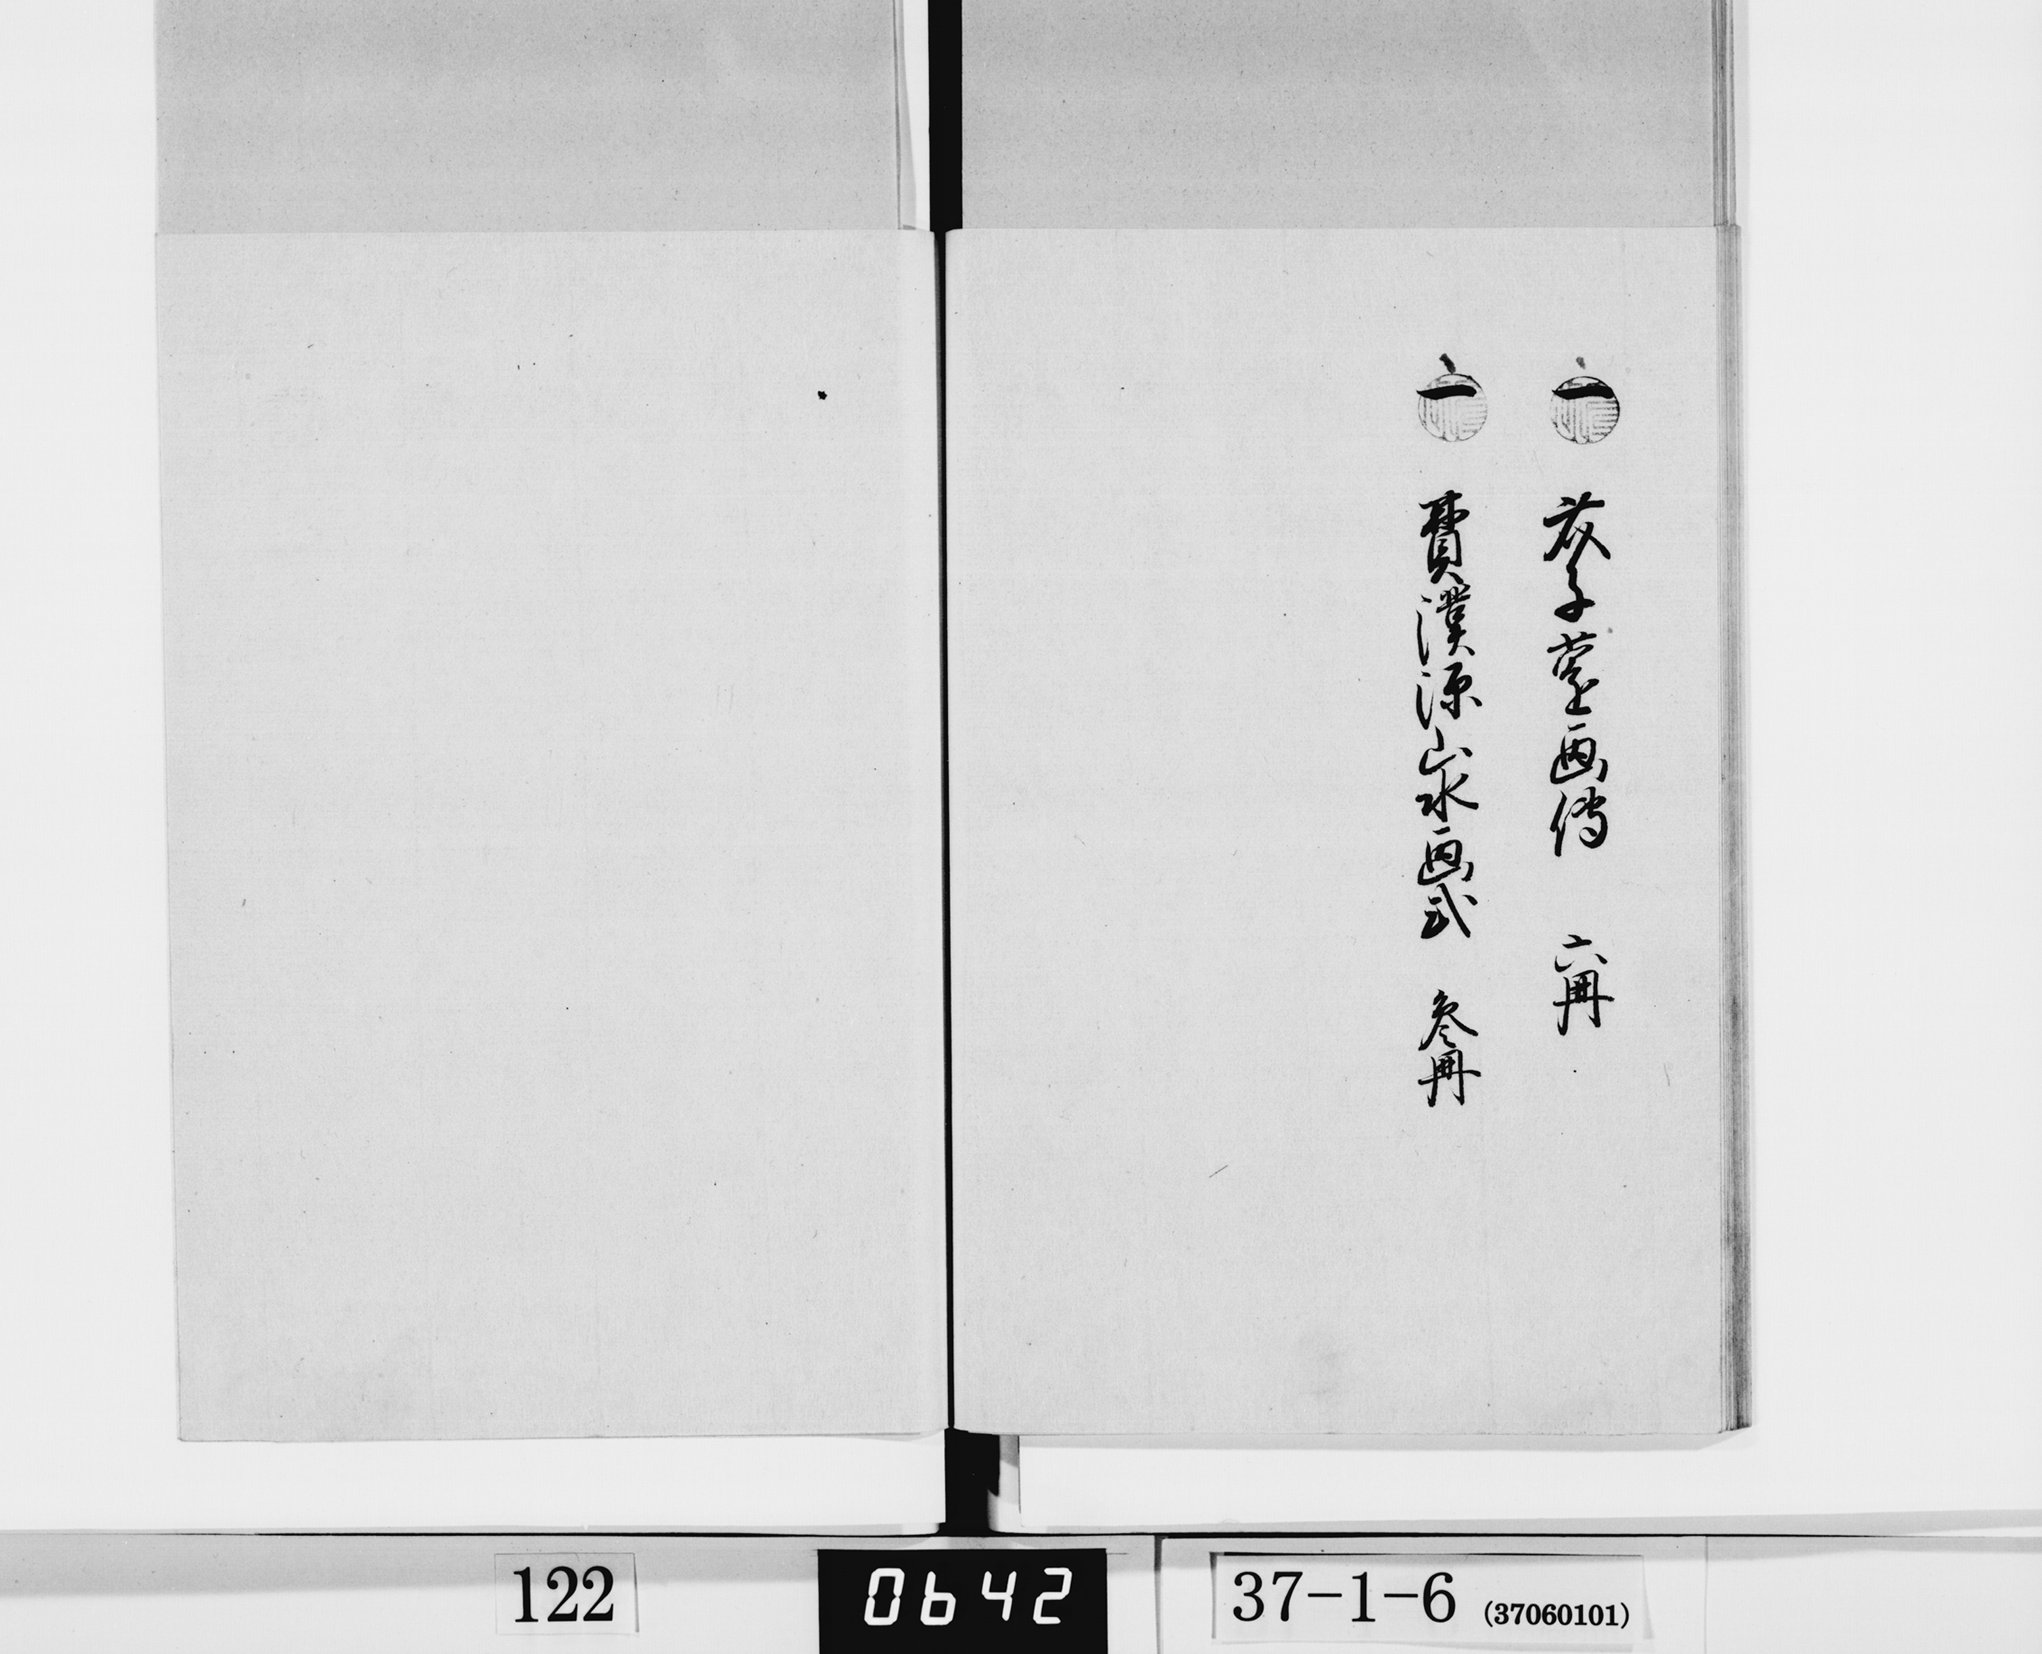 一 芥子薗画傳 六冊
一 費漢源山水画式 叄冊
122
0642
37-1-6 (37060101)